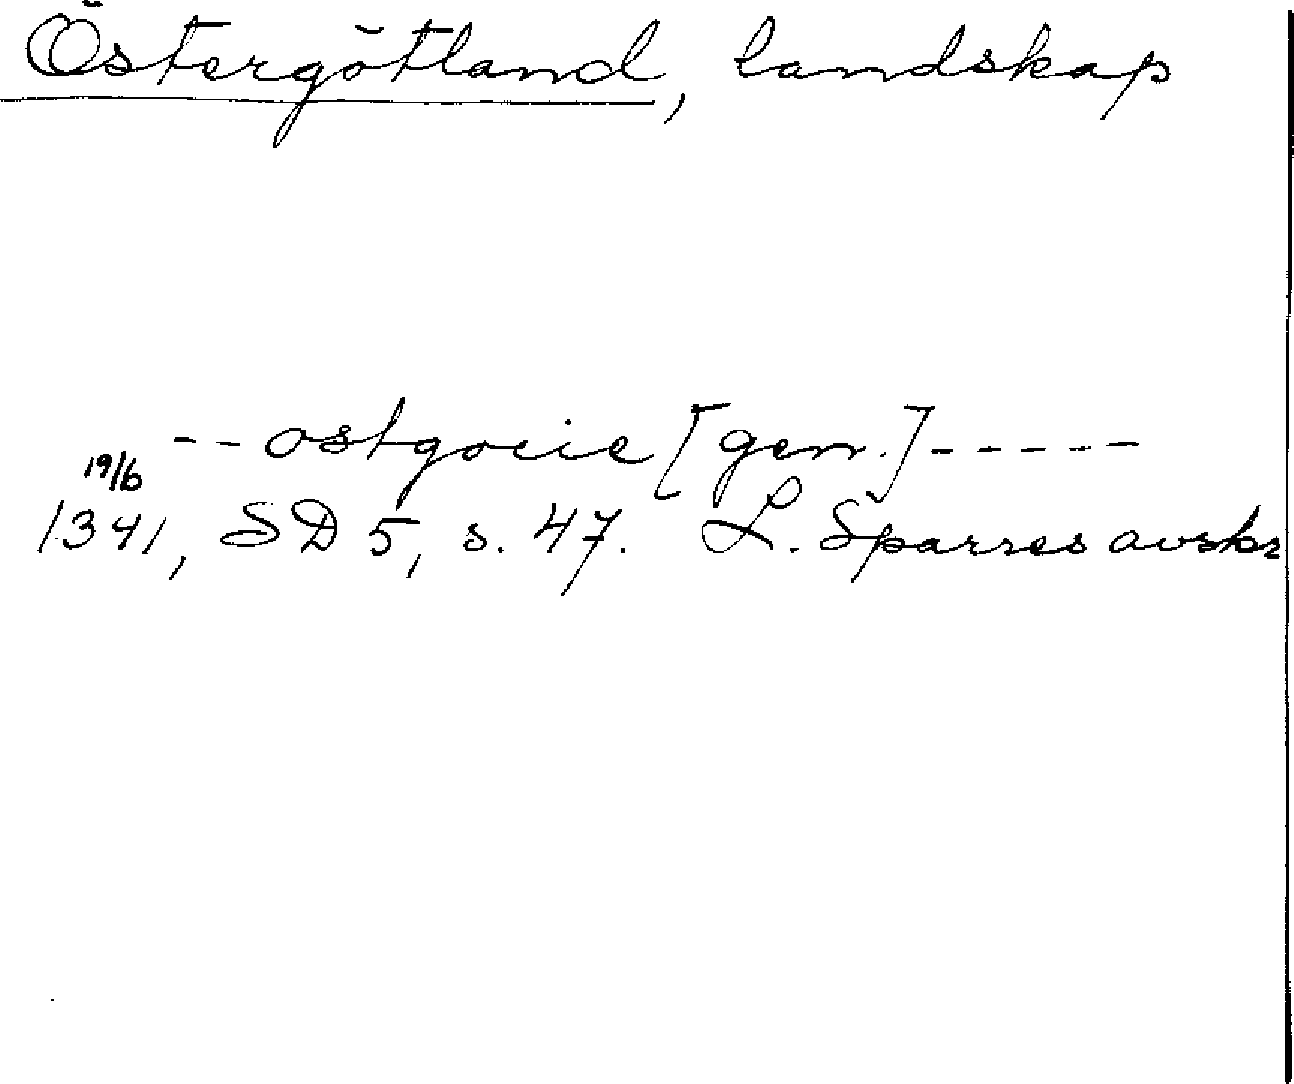 Östergötland, landskap
-- ostgocie [gen.] -----
19/6
1341, SD 5, s. 47. L. Sparres avskr